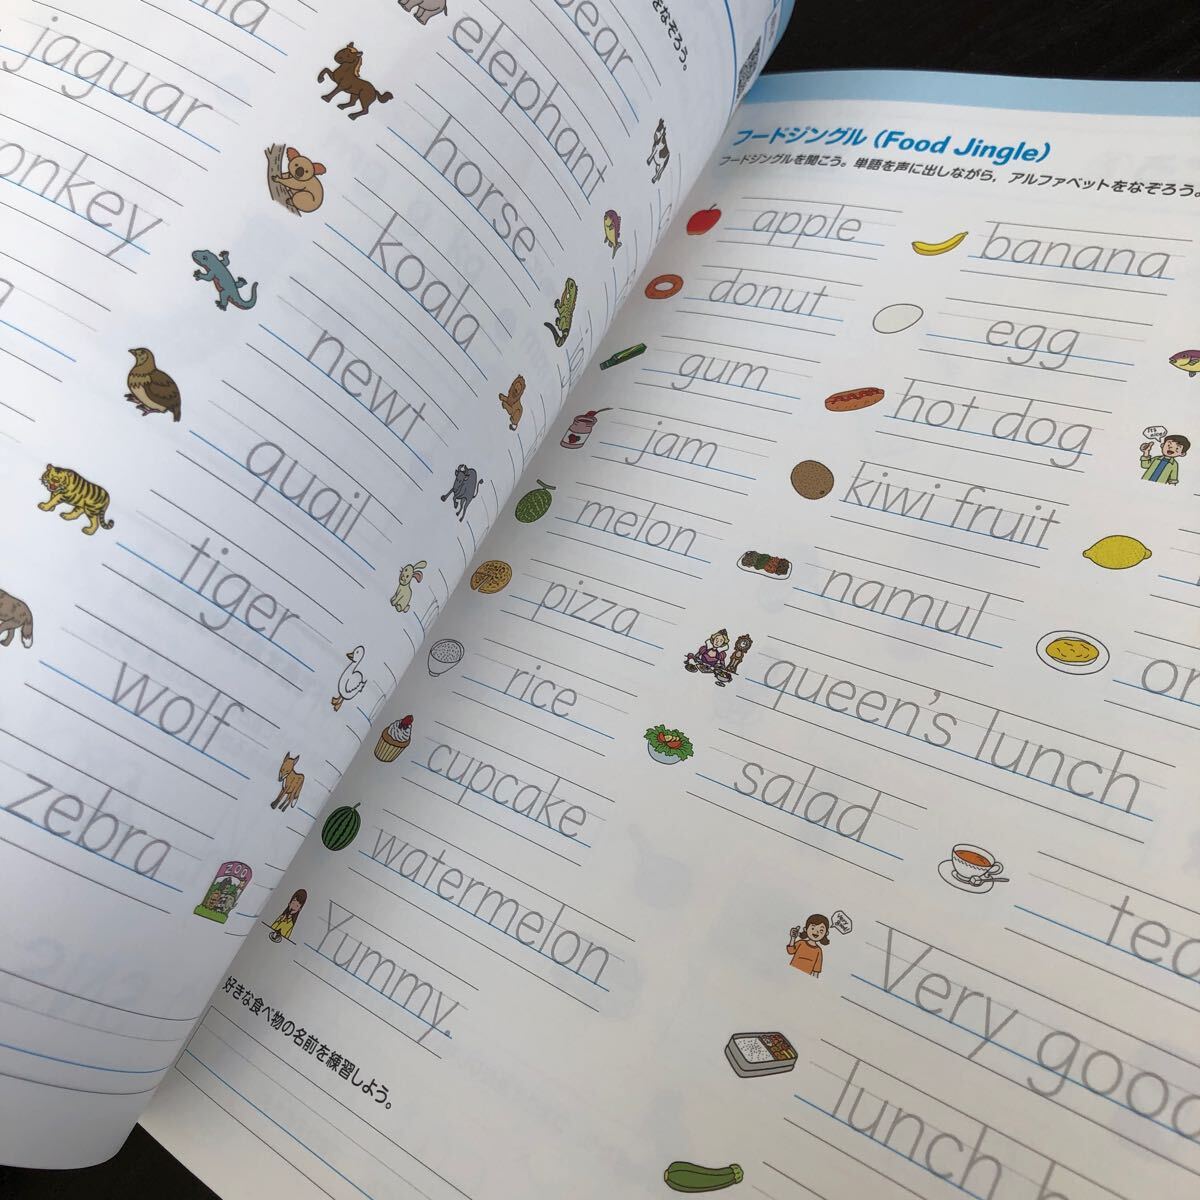 をなぞろう。
bear
elephant
jaguar
horse
onkey
koala
newt
quail
tiger
wolf
zebra
ZOO
フードジングル (Food Jingle)
フードジングルを聞こう。単語を声に出しながら，アルファベットをなぞろう。
apple
banana
donut
egg
gum
hot dog
jam
kiwi fruit
melon
namul
pizza
queen's lunch
rice
salad
cupcake
tea
watermelon
Very good!
Very good
Yummy.
lunch b
好きな食べ物の名前を練習しよう。